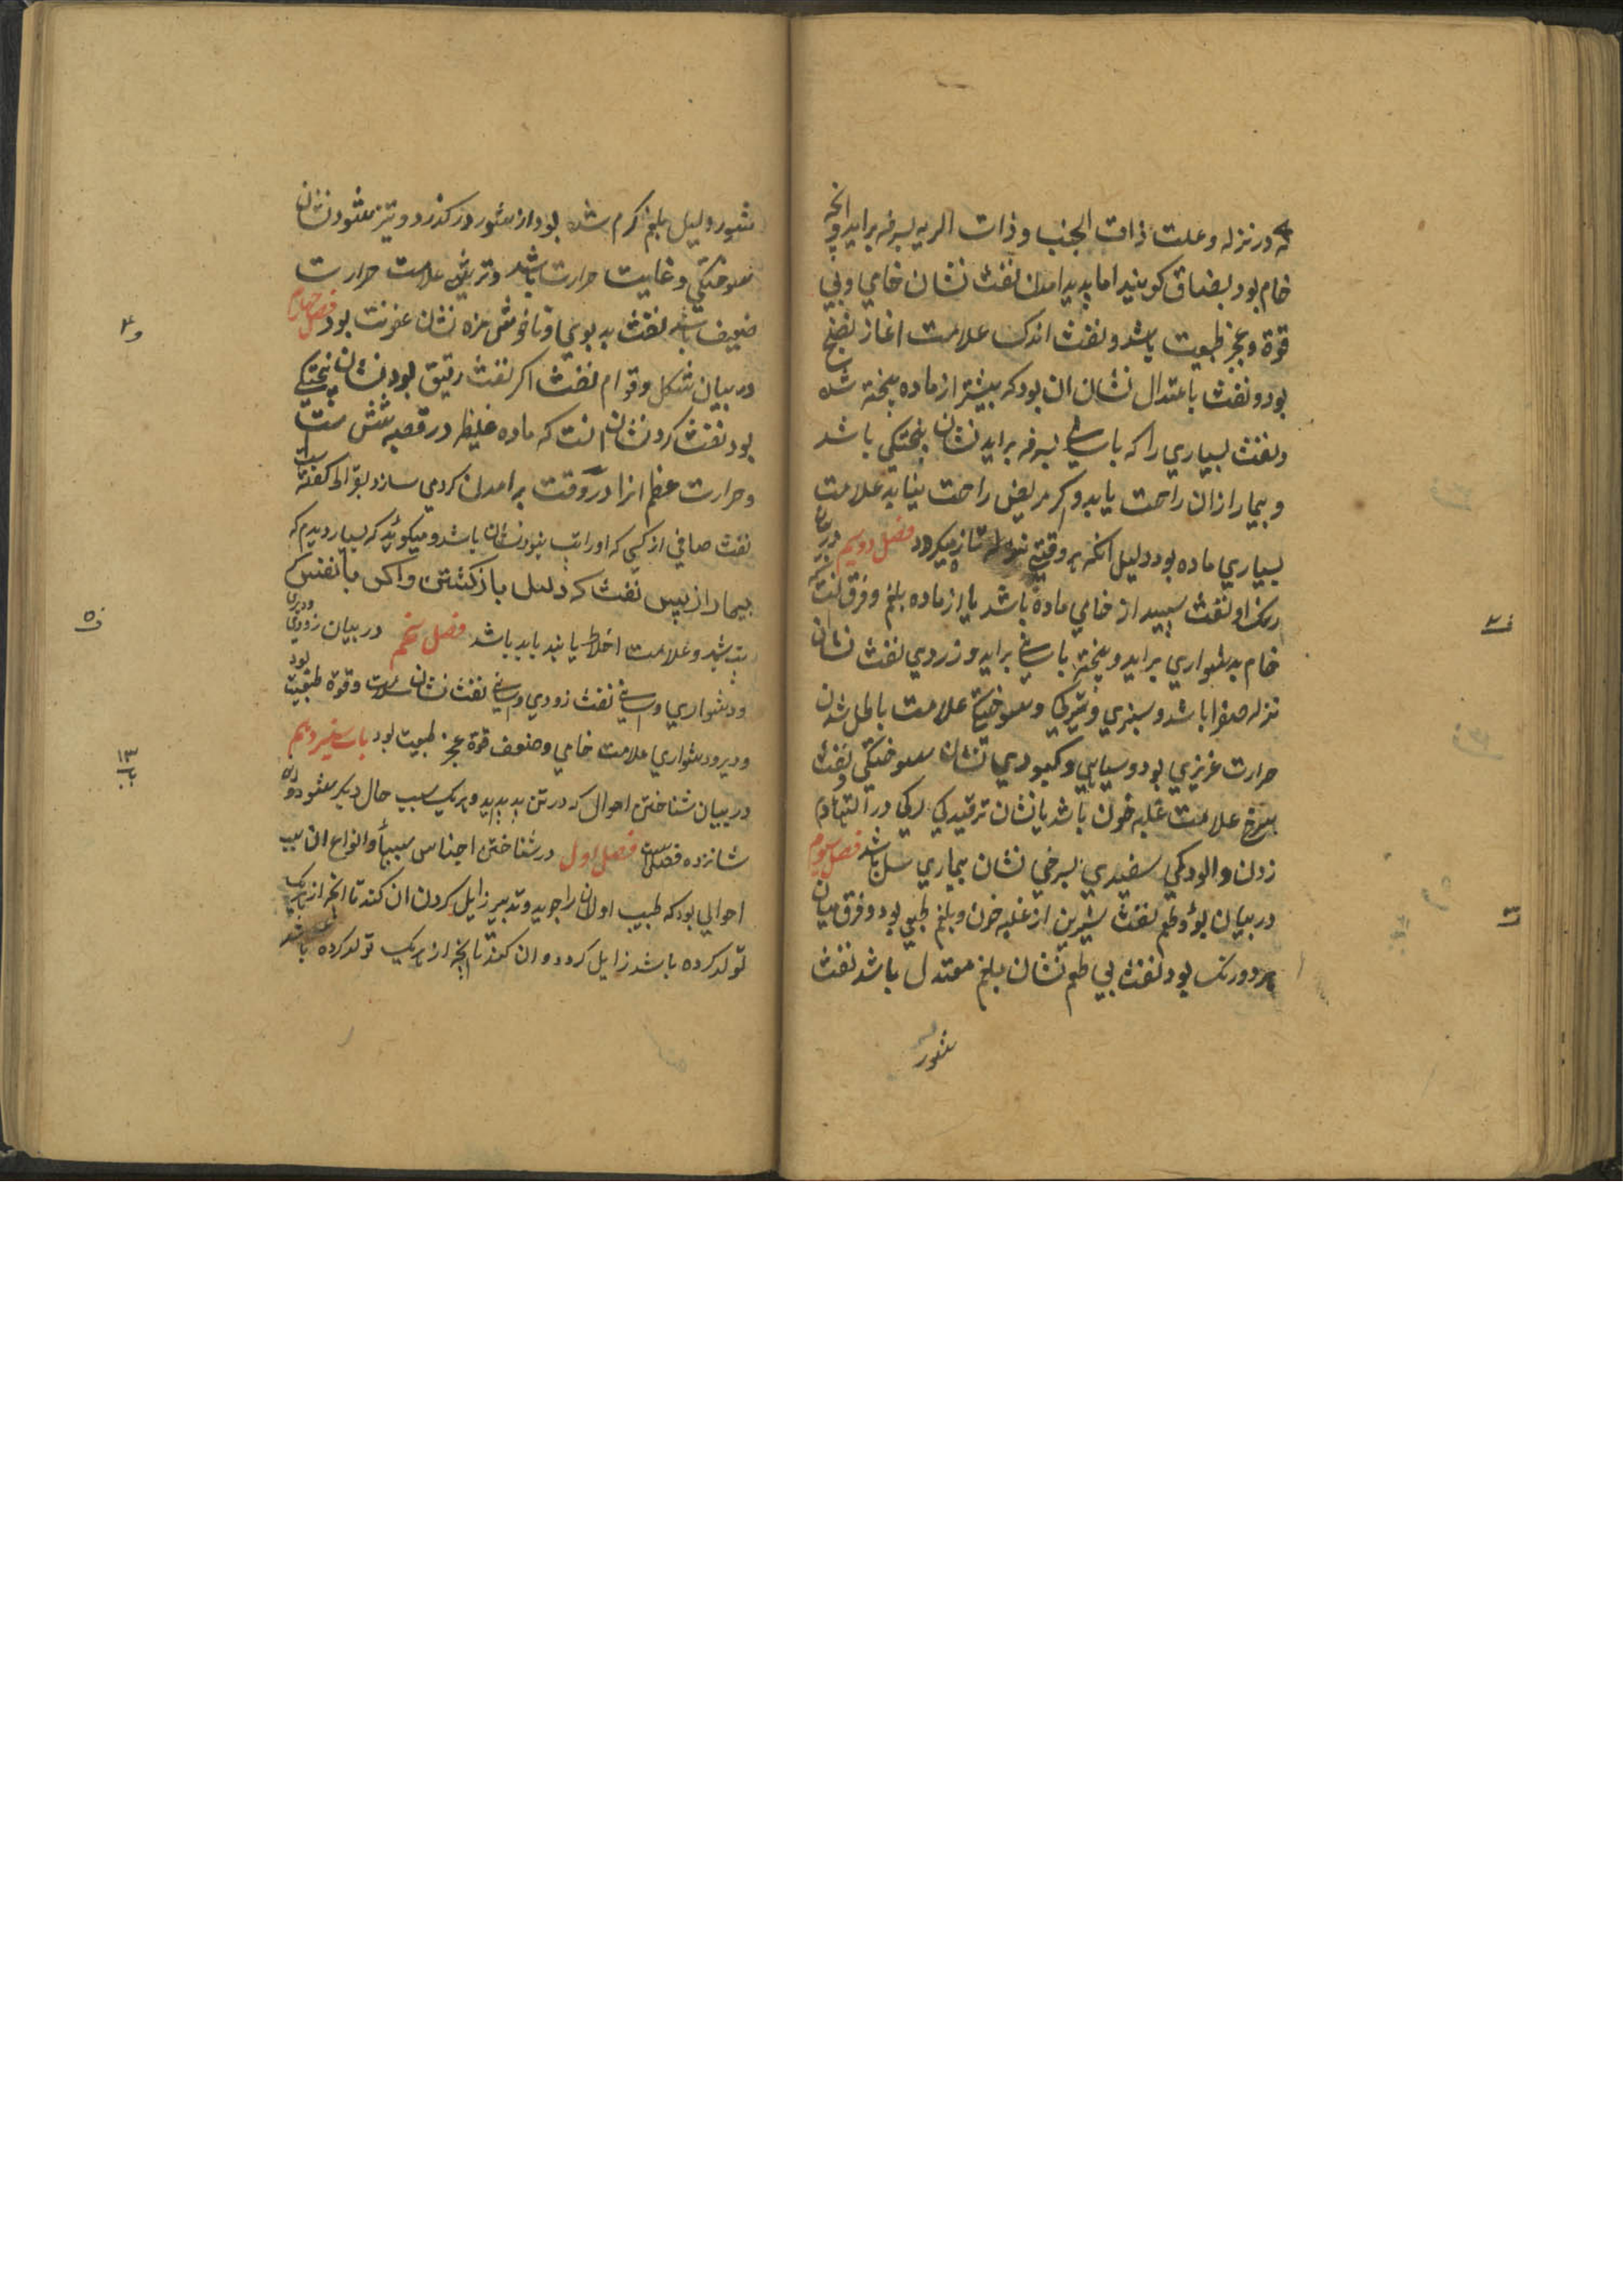 که در نزله و علت ذات الجنب و ذات الریه بسرفه براید و انچه
خام بود بضاق کویند اما پدید امدن نفث نشان خامی و بی
قوة و عجز طبیعت باشد و نفث اندک علامت اغاز نضج
بود و نفث باعتدال نشان ان بود که بیشتر از ماده پخته شده
و نفث بسیاری را که باسانی بسرفه براید نشان پختکی باشد
و بیمار ازان راحت یابد و اکر مریض راحت نیابد علامت
بسیاری ماده بود دلیل انکه هر وقتی نزله تازه میکردد فصل دویم در بیان
رنک او نفث سپید از خامی ماده باشد یا از ماده بلغم و فرق انست که
خام بدشواری براید و پخته باسانی براید و زردی نفث نشان
نزله صفرا باشد و سبزی و تیرکی و سوختکی علامت باطل شدن
حرارت غریزی بود و سیاهی و کبودی نشان سوختکی و نفث
سرخ علامت غلبه خون باشد یا نشان ترقیدکی رکی در التهاء دم
زدن و الودکی سفیدی بسرخی نشان بیماری سل باشد فصل سیوم
در بیان بو و طعم نفث شیرین از غلبه خون و بلغم طبیعی بود و فرق میان
هر دو رنک بود نفث بی طعم نشان بلغم معتدل باشد نفث
شور
شور دلیل بلغم کرم شده بود از شور در کذرد و تیز شود نشان
سوختکی و غایت حرارت باشد و ترشی علامت حرارت
ضعیف باشد نفث بد بوی و ناخوشی مزه نشان عفونت بود فصل چهارم
در بیان شکل و قوام نفث اکر نفث رقیق بود نشان پختکی
بود نفث کرد نشان انست که ماده غلیظ در قصبه شش است
و حرارت عظم انرا در وقت بر امدن کردمی سازد بقراط کفته است
نفث صافی از کسی که اورا تب نبود نشان باشد و میکوید که بسیار دیدم که
بیمار از پس نفث که دلیل باز کشتن واکس با نفس
بتر شد و علامت اخلاط باشد فصل پنجم در بیان زودی و دیری
و دشواری و اسانی نفث زودی و اسانی نفث نشان سلامت و قوة طبیعت بود
و دیر و دشواری علامت خامی و ضعف قوة عجز طبیعت بود باب سیزدهم
در بیان شناختن احوال که در تن پدید اید و هر یک سبب حال دیکر شود و در
شانزده فصلست فصل اول در شناختن اجناس سببها و انواع ان سبب
احوالی بود که طبیب اول ان را جوید و تدبیر زایل کردن ان کند تا انچه از هر یک
تولد کرده باشد زایل کردد و ان کند تا انچه از هر یک تولد کرده باشد
ف۴
ف۵
ب ۱۳